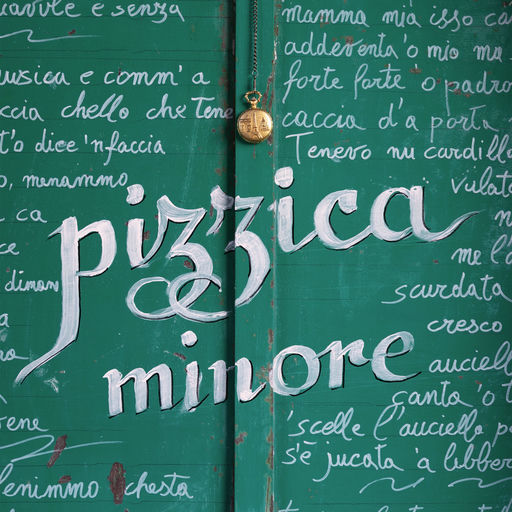 e senza
musica e comm' a
ccia chello che tene
t'o dice 'nfaccia
o, menammo
ca
ce
diman
a
vene
chesta
mamma mia isso ca
addeventa 'o mio ma
forte forte 'o padro
caccia d'a porta
Tenevo nu cardill
vulat
me l'a
scurdata
cresco
auciell
canta 'o t
'scelle l'auciello pe
s'è jucata 'a libber
pizzica
minore